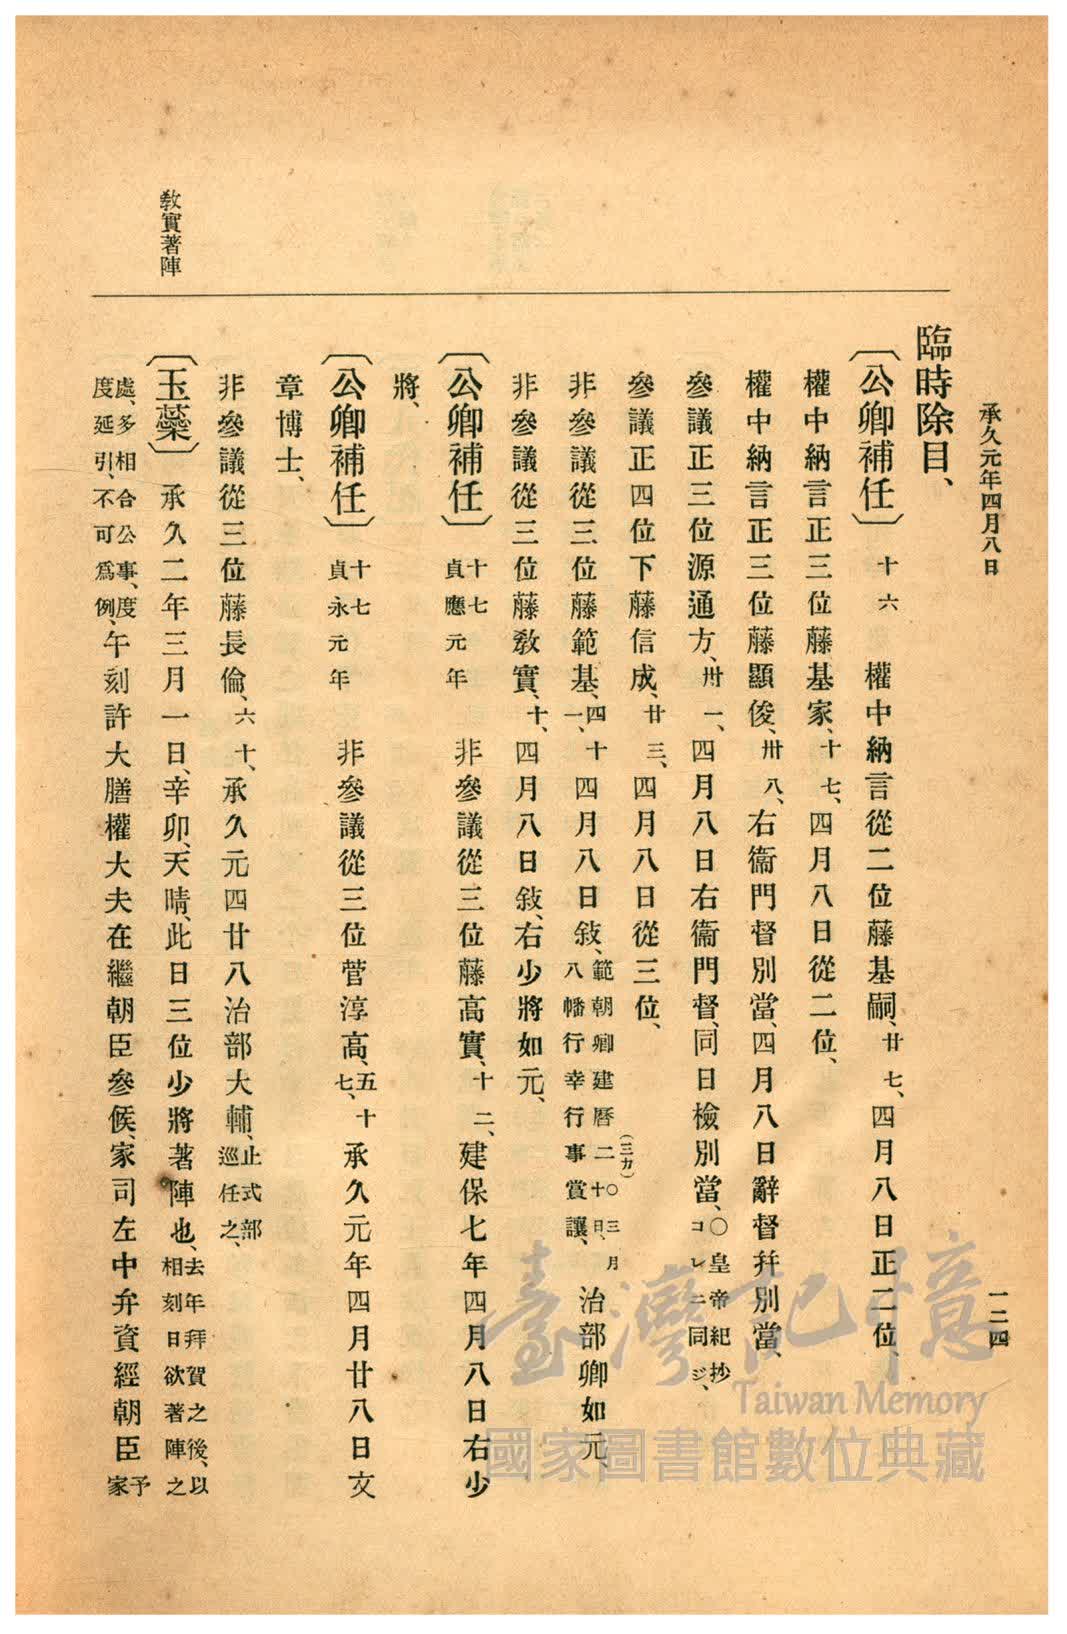 承久元年四月八日
一二四
臨時除目、
〔公卿補任〕十六 權中納言從二位藤基嗣、廿七、四月八日正二位、
權中納言正三位藤基家、十七、四月八日從二位、
權中納言正三位藤顯俊、卅八、右衞門督別當、四月八日辭督幷別當、
參議正三位源通方、卅一、四月八日右衞門督、同日檢別當、〇皇帝紀抄コレニ同ジ、
參議正四位下藤信成、廿三、四月八日從三位、
非參議從三位藤範基、四十一、四月八日敍、範朝卿建曆二(三カ)〇十日、三月八幡行幸行事賞讓、治部卿如元、
非參議從三位藤敎實、十、四月八日敍、右少將如元、
〔公卿補任〕十七貞應元年 非參議從三位藤高實、十二、建保七年四月八日右少
將、
〔公卿補任〕十七貞永元年 非參議從三位菅淳高、五十七、承久元年四月廿八日文
章博士、
非參議從三位藤長倫、六十、承久元四廿八治部大輔、止式部巡任之、
〔玉蘂〕承久二年三月一日、辛卯、天晴、此日三位少將著陣也、去年拜賀之後、以相刻日欲著陣之
處、多相合公事、度度延引、不可爲例、午刻許大膳權大夫在繼朝臣參候、家司左中弁資經朝臣予家
敎實著陣
臺灣記憶
Taiwan Memory
國家圖書館數位典藏